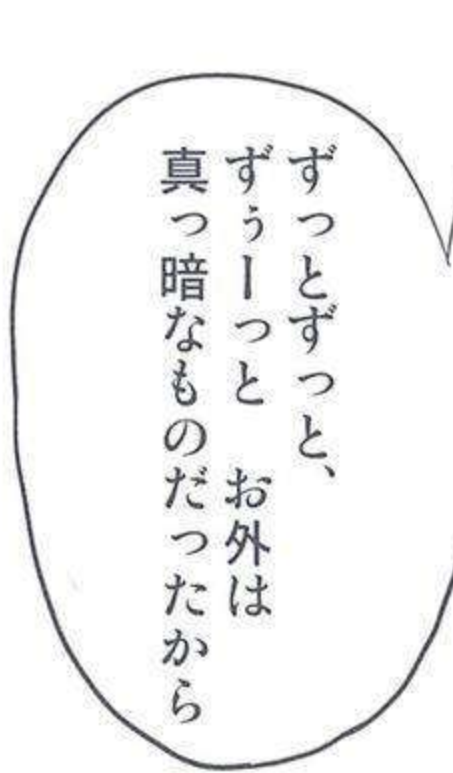 ずっとずっと、
ずぅーっと　お外は
真っ暗なものだったから